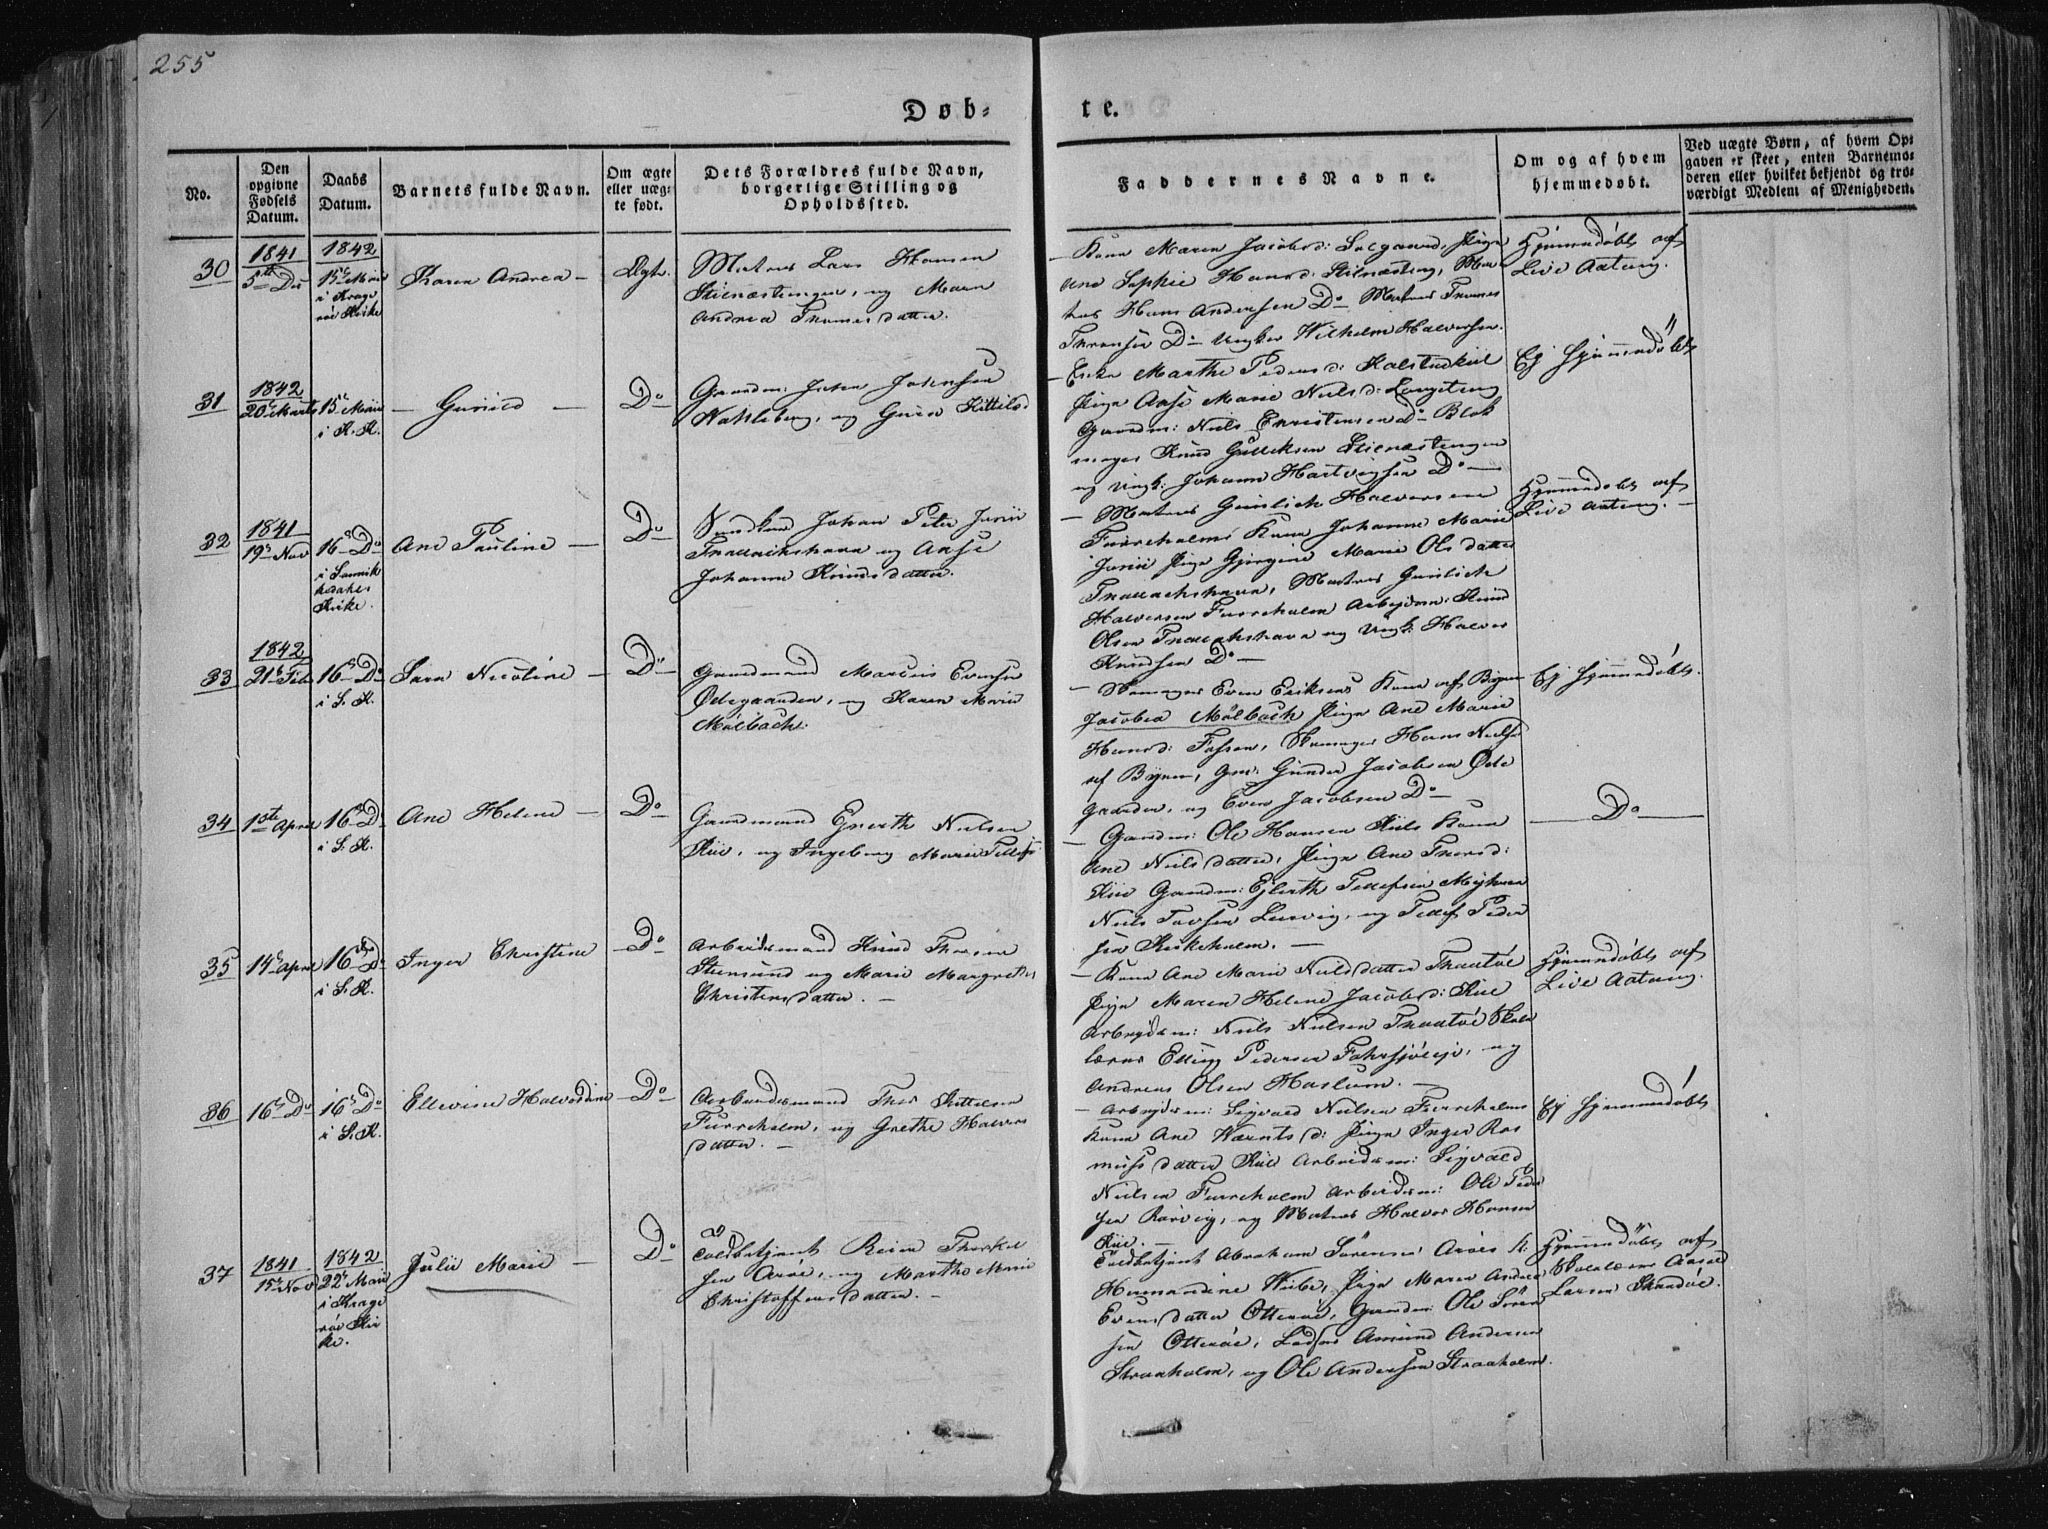 255
Døb-
te.
No.
Den
opgivne
Fødsels
Datum.
Daabs
Datum.
Barnets fulde Navn.
Om ægte
eller uæg-
te født.
Dets Forældres fulde Navn,
borgerlige Stilling og
Opholdssted.
Faddernes Navne.
Om og af hvem
hjemmedøbt.
Ved uægte Børn, af hvem Op-
gaven er skeet, enten Barnemo-
deren eller hvilket bekjendt og tro-
værdigt Medlem af Menigheden.
30
1841
5te De
1842
15de Mai
i Krage
röe Kirke
Karen Andrea –
Ægte.
Matros Lars Hansen
Stenæstangen, og Maren
Andrea Thomesdatter.
– Kone Maren Jacobsd: Solgaard, Pige
Ane Sophie Hansd: Stenæsteng, Ma-
tros Hans Andersen Do Matros Thomes
Do Ungkar Wilhelm Halversen.
Hjemmedöbt af
Live Aatang.
31
1842
20de Marts
15de Mai
i K. K.
– Gunild –
Do
Gaardm: John Johnsen
og Guren Kittilsd
– Enke Marthe Pedersd:
Pige Anse Marie Nielsd: Langetang
Gaardm: Niels Christensen Do Blok
mager Knud Gulleksen Stenæstengen
og Ungk: Johann Hartvigsen Do –
Ej Hjemmedöbt
32
1841
19de Nov
16de Do
i Sannik
Kirke.
Ane Pauline –
Do
Johan Peter
og Anse
Johanne Knudsdatter.
– Matros Gunlich Halversens
Furreholms Kone Johanne Marie
Pige Gjorgine Marie Olsdatter
Matros Gunlich
Halversen Furreholm Arbejdsm: Knud
Olsen og Ungk: Halvor
Knudsen Do –
Hjemmedöbt af
Live Aatang. –
33
1842
21de Feb
16de Do
i S. K.
Sara Nicoline –
Do
Gaardmand Marcus Evensen
Ødegaarden, og Karen Marie
Mølbach.
– Even Eriksens Kone af Byen
Jacobea Mölbach Pige Ane Marie
Hansd: Fossen, Hans Niels
af Byen, Gm: Gunder Jacobsen Øde
gaarden, og Even Jacobsen Do –
Ej Hjemmedöbt.
34
1ste April
16de D
i S. K.
Ane Helene –
Do
Gaardmand Ejlerth Nielsen
Kiil, og Ingeborg Marie Tellefs:
– Gaardm: Ole Hansen Kiils Kone
Ane Nielsdatter, Pige Ane Thorsd:
Kiil Gaardm: Ejlerth Tellefsen
Niels og Tellef Peder
sen Kirkeholm. –
Do
35
14de April
16de Do
i S. K.
Inger Christine
Do
Arbeidsmand Knud
Stensund og Marie Margrethe
Christensdatter. –
– Kone Ane Marie Nielsdatter Traatöe
Pige Maren Helene Jacobsd: Kiil
Arbejdsm: Niels Nielsen Traatöe Skole
lærer Elling Pedersen og
Andreas Olsen Haslum. –
Hjemmedöbt af
Live Aatang.
36
16de Do
16de Do
i S. K.
Ellevine Halvordine
– Do –
Arbeidsmand Thor Kittelsen
Furreholm, og Grethe Halvors
datter. –
– Arbejdsm: Sigvald Nielsen Furreholms
Kone Ane Pige Inger Ras
musdatter Kiil Arbeidsm: Sigvald
Nielsen Furreholm Arbeidsm: Ole Peder
sen Rörvig, og Matros Halvor Hansen
Kiil. –
Ej Hjemmedöbt
37
1841
15de Nov
1842
22de Mai
i Krage
röe Kir
ke.
Julie Marie –
Do
Toldbetjent Reier Thorkel
sen Aröe, og Marthe Marie
Christoffersdatter. –
Toldbetjent Abraham Sörensens Aröes K:
Hermandine Wibe, Pige Maren
Evensdatter Otteröe, Gaardm: Ole Sören
sen Otteröe, Lods Amund Andersen
Straaholm, og Ole Andersen Straaholm.
Hjemmedöbt af
Skolelærer
Larsen Skaadöe.